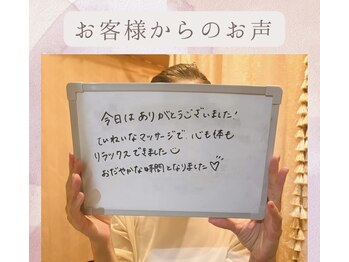 お客様からのお声
今日はありがとうございました!
ていねいなマッサージで、心も体も
リラックスできました
おだやかな時間となりました♡